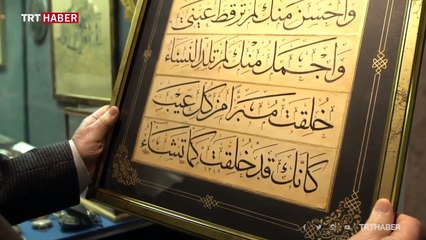 TRT HABER
واحسن منك لم ترقط عيني
واجمل منك لم تلد النساء
خلقت مبرأ من كل عيب
كأنك قد خلقت كما تشاء
TRTHABER